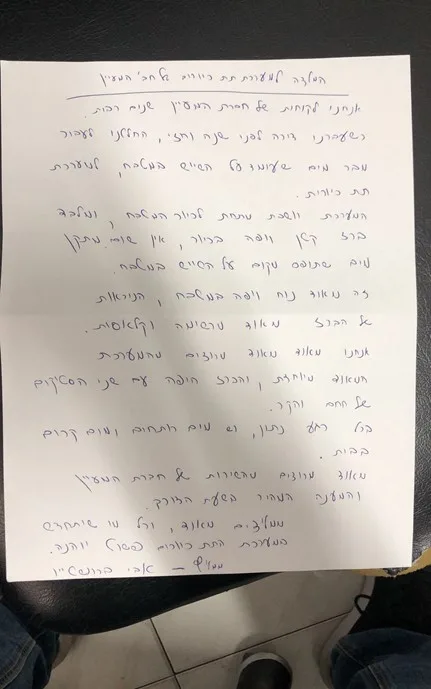 המלצה למערכת תת כיורים של חב' המעיין
אנחנו לקוחות של חברת המעיין שנים רבות.
כשעברנו דירה לפני שנה וחצי, החלטנו לעבור
מבר מים שעומד על השייש במטבח, למערכת
תת כיורית.
המערכת יושבת מתחת לכיור המטבח, ומלבד
ברז קטן ויפה בכיור, אין שום מתקן
מים שתופס מקום על השייש במטבח.
זה מאוד נוח ויפה במטבח, הניראות
של הברז מאוד מרשימה וקלאסית.
אנחנו מאוד מאוד מרוצים מהמערכת
המאוד מיוחדת, והברז היפה עם שני הסטיקים
של החם והקר.
בכל רגע נתון, יש מים רותחים ומים קרים
בבית.
מאוד מרוצים מהשירות של חברת המעיין
והמענה המהיר בשעת הצורך.
ממליצים מאוד, וכל מי שיתחדש
במערכת התת כיורים פשוט יהנה.
ממליץ – אבי